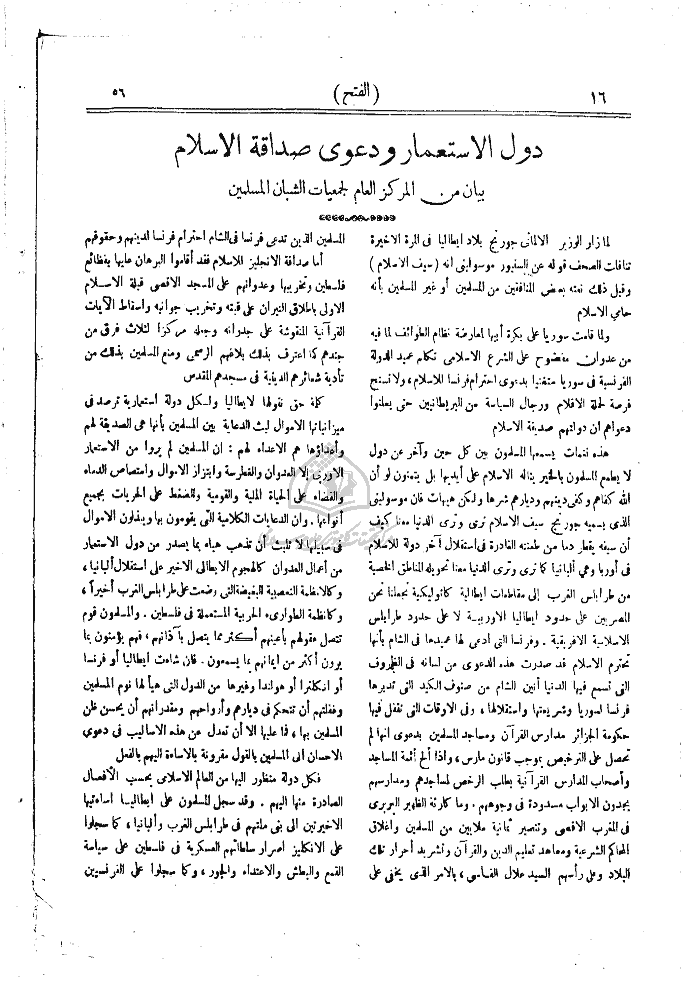 ١٦
(الفتح)
٥٦
دول الاستعمار ودعوى صداقة الاسلام
بيان من المركز العام لجمعيات الشبان المسلمين
لما زار الوزير الالمانى جورنج بلاد ايطاليا فى المرة الاخيرة
تناقلت الصحف قوله عن السنيور موسولينى انه (سيف الاسلام)
وقبل ذلك نعته بعض المنافقين من المسلمين أو غير المسلمين بأنه
حامى الاسلام
ولما قامت سوريا على بكرة أبيها لمعارضة نظام الطوائف لما فيه
من عدوان مفضوح على الشرع الاسلامى تكلم عميد الدولة
الفرنسية فى سوريا متغنيا بدعوى احترام فرنسا للاسلام، ولا تسنح
فرصة لحملة الاقلام ورجال السياسة من البريطانيين حتى يعلنوا
دعواهم ان دولتهم صديقة الاسلام
هذه نغمات يسمعها المسلمون بين كل حين وآخر عن دول
لا يطمع المسلمون بالخير يناله الاسلام على أيديها بل يتمنون لو أن
الله كفاهم وكفى دينهم وديارهم شرها ولكن هيهات فان موسولينى
الذى يسميه جورنج سيف الاسلام نرى وترى الدنيا معنا كيف
أن سيفه يقطر دما من طعنته الغادرة فى استقلال آخر دولة للاسلام
فى أوربا وهى ألبانيا كما نرى وترى الدنيا معنا تحويله المناطق الخصبة
من طرابلس الغرب إلى مقاطعات ايطالية كاثوليكية تجعلنا نحن
المصريين على حدود ايطاليا الاوربية لا على حدود طرابلس
الاسلامية الافريقية. وفرنسا التى ادعى لها عميدها فى الشام بأنها
تحترم الاسلام قد صدرت هذه الدعوى من لسانه فى الظروف
التى تسمع فيها الدنيا أنين الشام من صنوف الكيد التى تدبرها
فرنسا لسوريا وشريعتها واستقلالها، وفى الاوقات التى تقفل فيها
حكومة الجزائر مدارس القرآن ومساجد المسلمين بدعوى انها لم
تحصل على الترخيص بموجب قانون مارس، واذا ألح أئمة المساجد
وأصحاب المدارس القرآنية بطلب الرخص لمساجدهم ومدارسهم
يجدون الابواب مسدودة فى وجوههم. وما كارثة الظهير البربرى
فى المغرب الاقصى وتنصير ثمانية ملايين من المسلمين واغلاق
المحاكم الشرعية ومعاهد تعليم الدين والقرآن وتشريد أحرار تلك
البلاد وعلى رأسهم السيد علال الفاسى، بالامر الذى يخفى على
المسلمين الذين تدعى فرنسا فى الشام احترام فرنسا لدينهم وحقوقهم
أما صداقة الانجليز للاسلام فقد أقاموا البرهان عليها بفظائع
فلسطين وتخريبها وعدوانهم على المسجد الاقصى قبلة الاسلام
الاولى باطلاق النيران على قبته وتخريب جوانبه واسقاط الآيات
القرآنية المنقوشة على جدرانه وجعله مركزا لثلاث فرق من
جندهم كما اعترف بذلك بلاغهم الرسمى ومنع المسلمين بذلك من
تأدية شعائرهم الدينية فى مسجدهم المقدس
كلمة حق نقولها لايطاليا ولكل دولة استعمارية ترصد فى
ميزانياتها الاموال لبث الدعاية بين المسلمين بأنها هى الصديقة لهم
وأعداؤها هم الاعداء لهم: ان المسلمين لم يروا من الاستعمار
الاوربى إلا العدوان والغطرسة وابتزاز الاموال وامتصاص الدماء
والقضاء على الحياة الملية والقومية والضغط على الحريات بجميع
أنواعها. وان الدعايات الكلامية التى يقومون بها ويبذلون الاموال
فى سبيلها لا تلبث أن تذهب هباء بما يصدر من دول الاستعمار
من أعمال العدوان كالهجوم الايطالى الاخير على استقلال ألبانيا،
وكالانظمة التعصبية البغيضة التى وضعت على طرابلس الغرب أخيراً،
وكانظمة الطوارىء الحربية المستعملة فى فلسطين. والمسلمون قوم
تتصل عقولهم بأعينهم أكثر مما يتصل بآذانهم، فهم يؤمنون بما
يرون أكثر من ايمانهم بما يسمعون. فان شاءت ايطاليا أو فرنسا
أو انكلترا أو هولندا وغيرها من الدول التى هيأ لها نوم المسلمين
وغفلتهم أن تتحكم فى ديارهم وأرواحهم ومقدراتهم أن يحسن ظن
المسلمين بها، فما عليها الا أن تعدل عن هذه الاساليب فى دعوى
الاحسان الى المسلمين بالقول مقرونة بالاساءة اليهم بالفعل
فكل دولة منظور اليها من العالم الاسلامى بحسب الافعال
الصادرة منها اليهم. وقد سجل المسلمون على ايطاليا اساءتيها
الاخيرتين الى بنى ملتهم فى طرابلس الغرب وألبانيا، كما سجلوا
على الانكليز اصرار سلطاتهم العسكرية فى فلسطين على سياسة
القمع والبطش والاعتداء والجور، وكما سجلوا على الفرنسيين